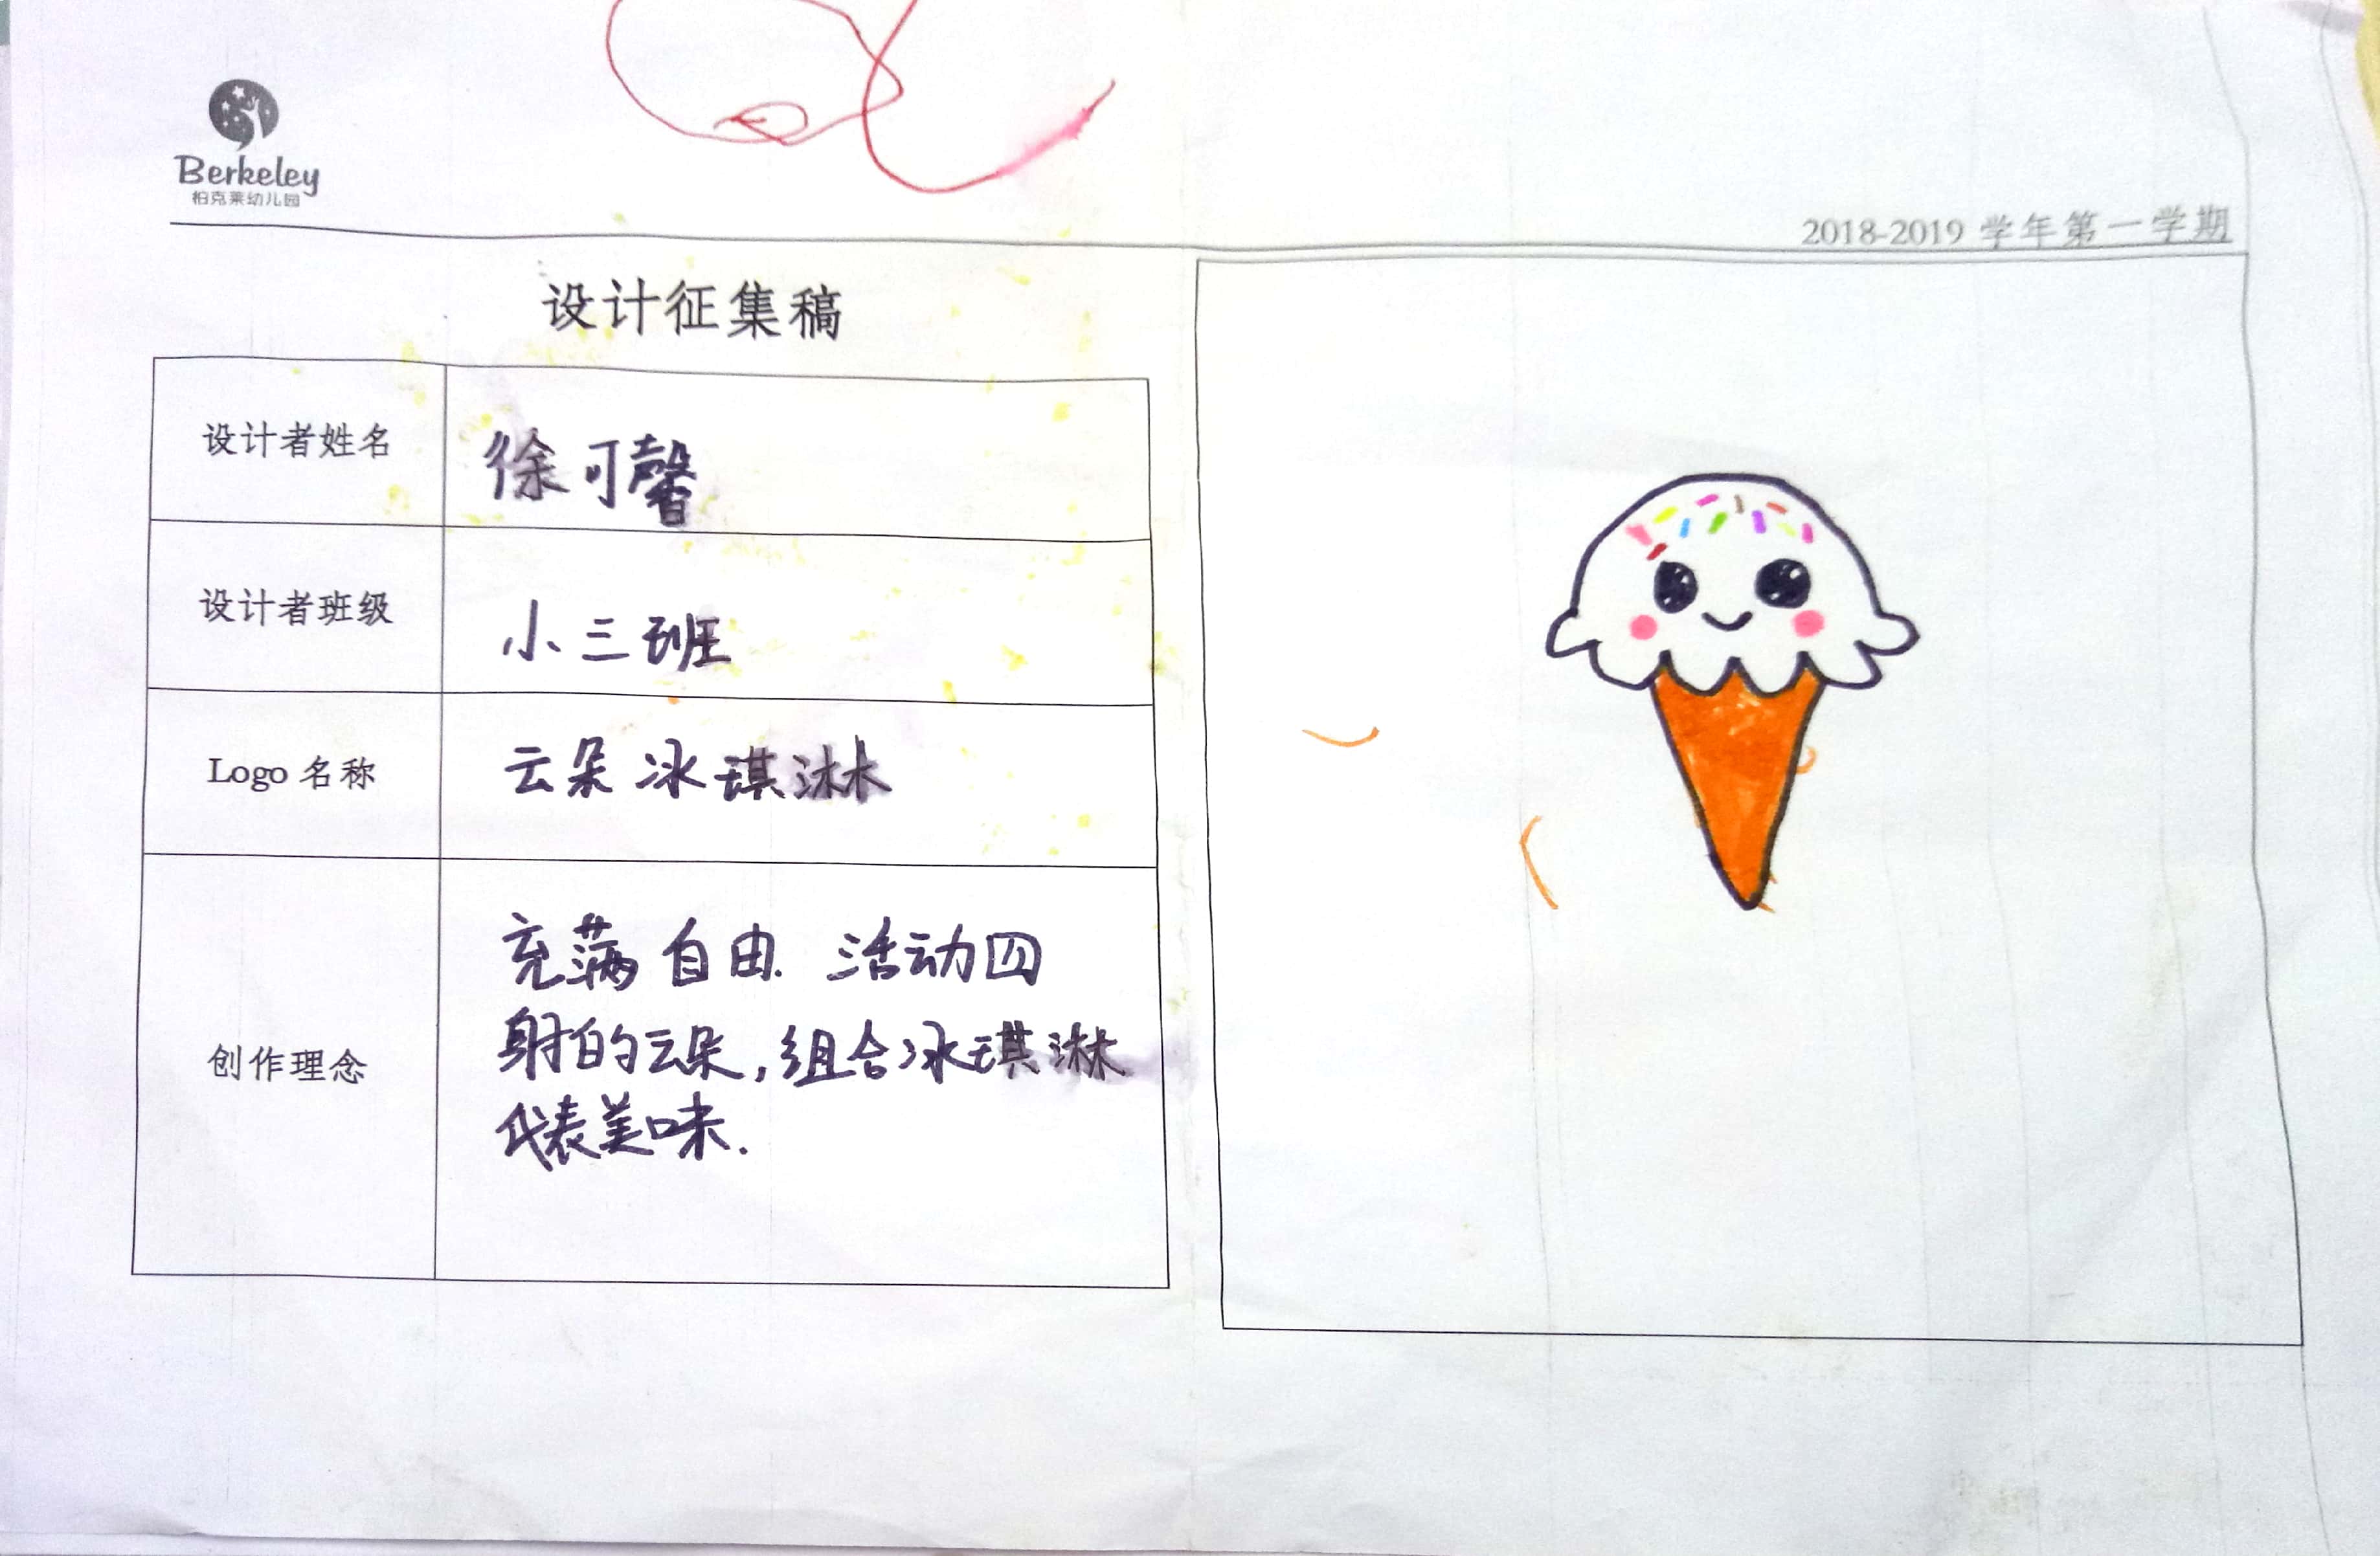 Berkeley
柏克莱幼儿园
2018-2019 学年第一学期
设计征集稿
设计者姓名 徐可馨
设计者班级 小三班
Logo 名称 云朵冰琪淋
创作理念 充满自由. 活动四
射的云朵，组合冰琪淋
代表美味.